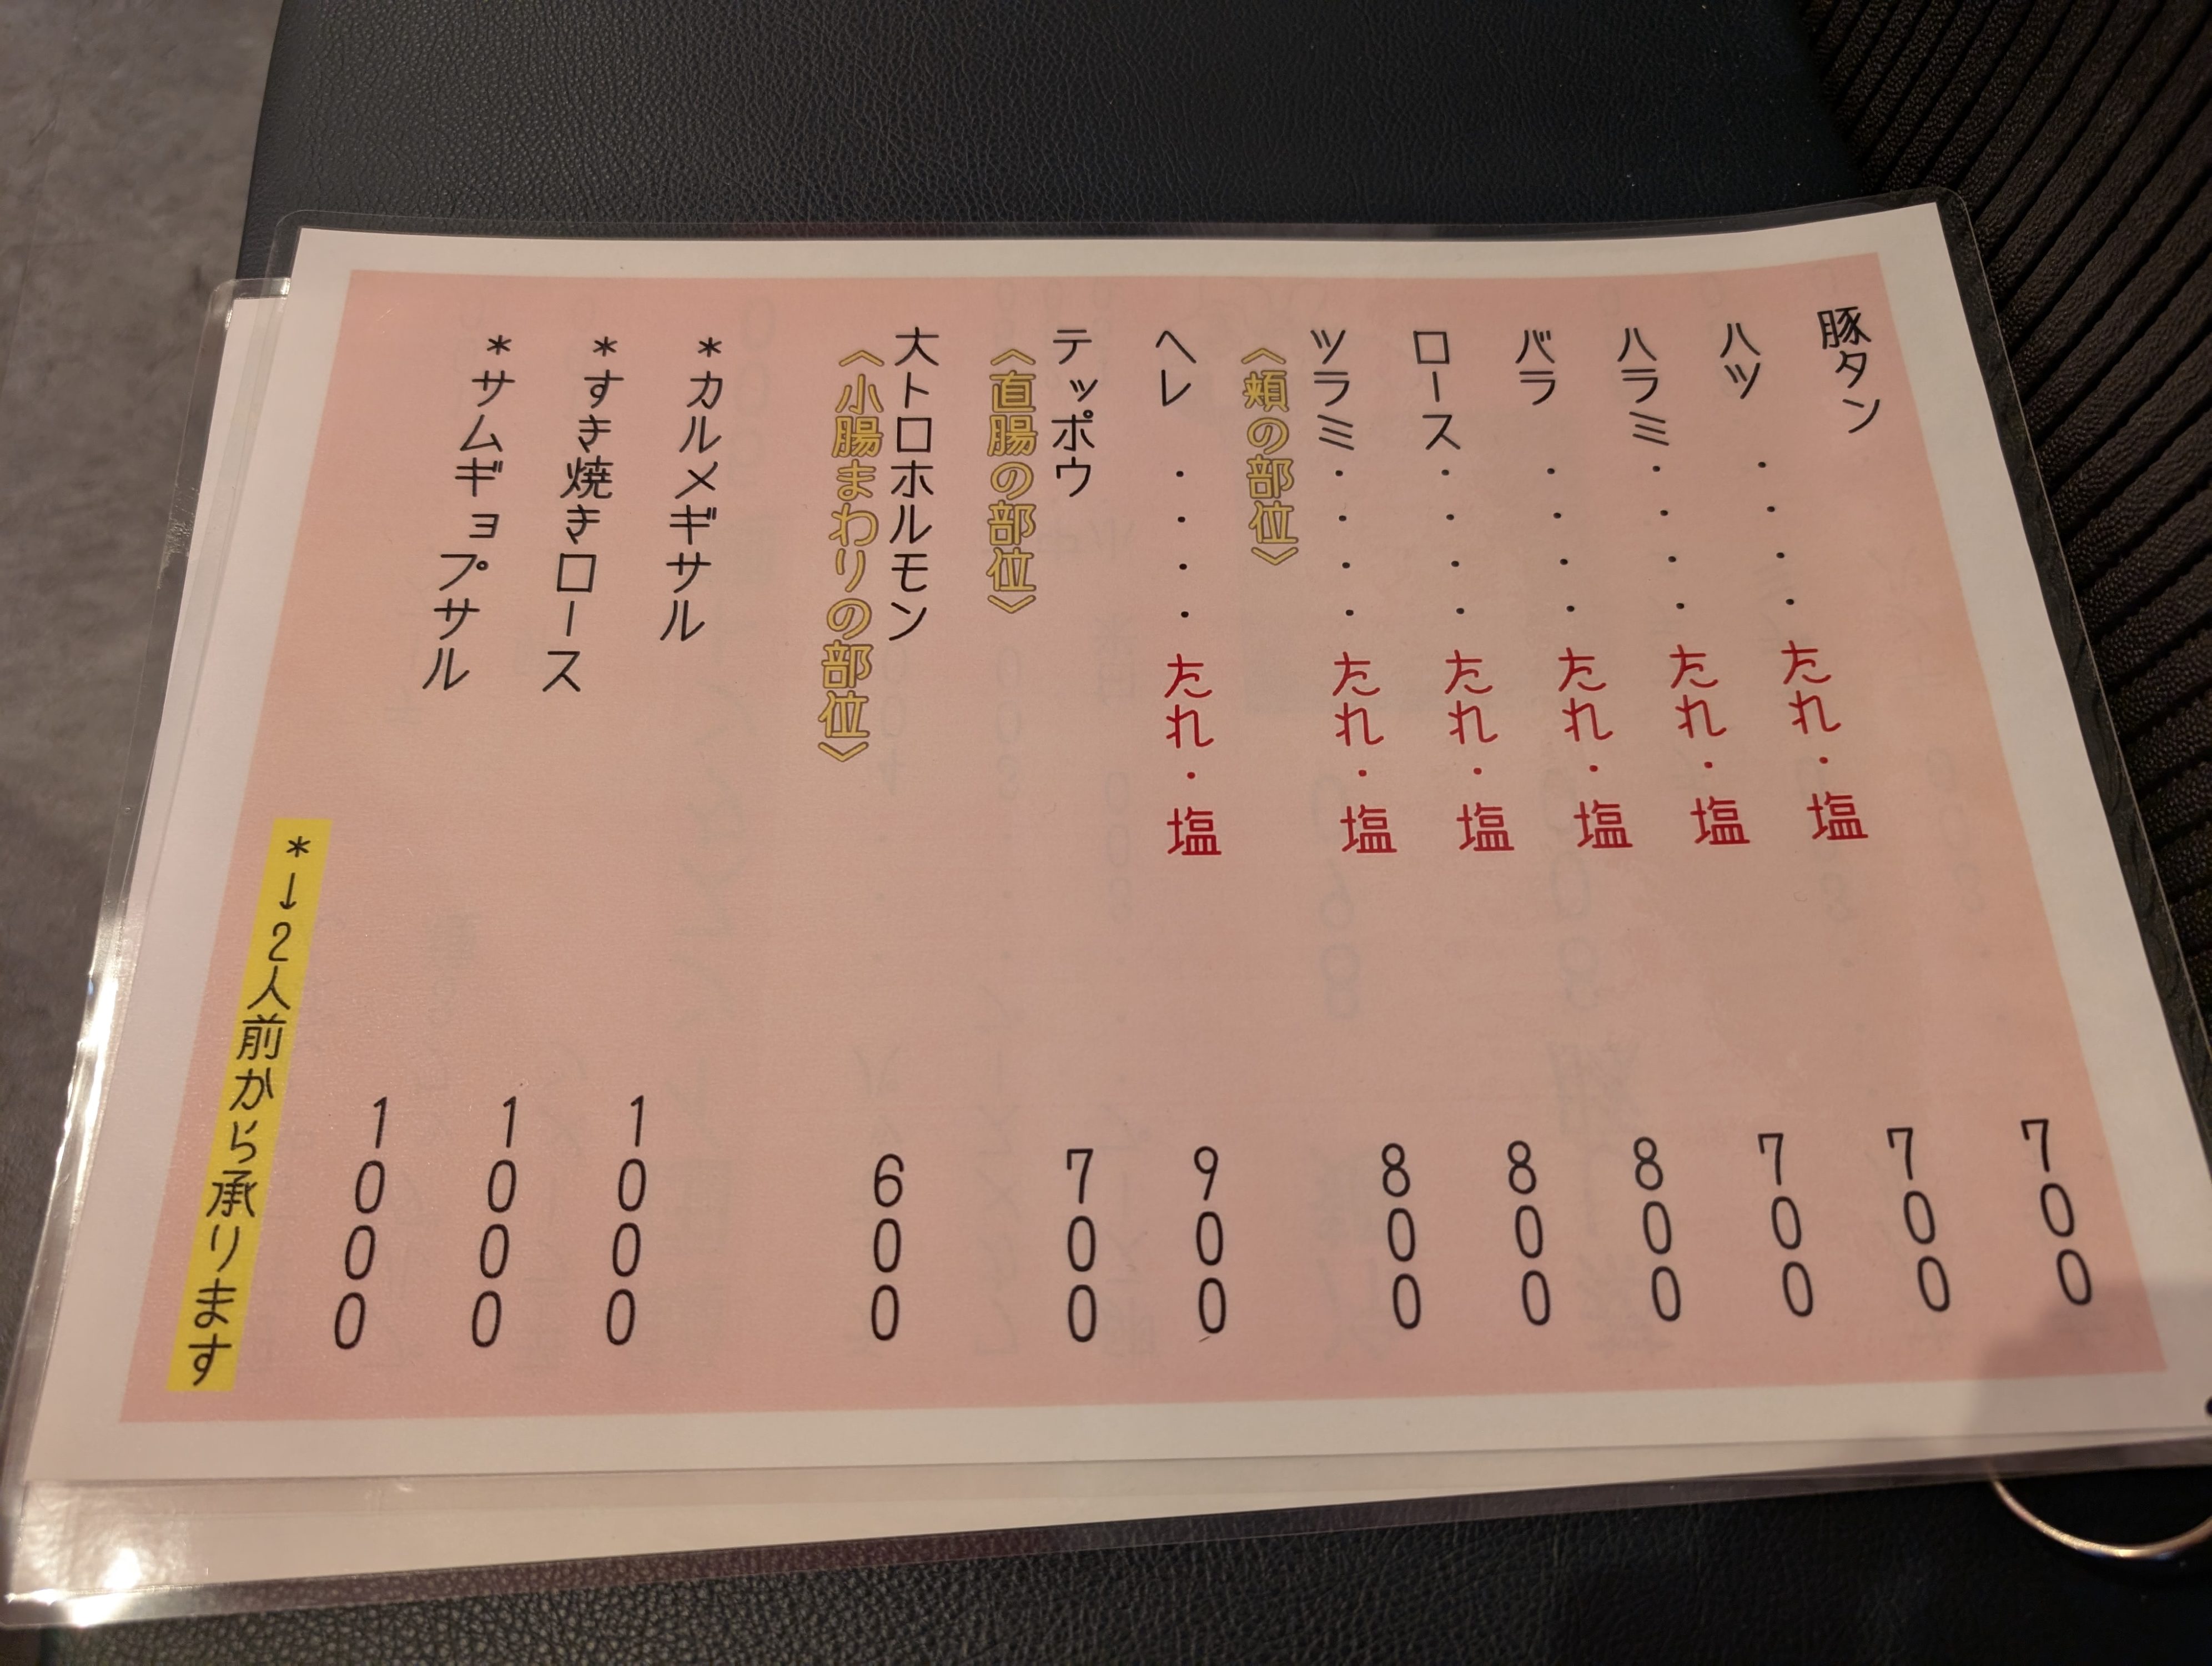 豚タン 700
ハツ・・・・たれ・塩 700
ハラミ・・・・たれ・塩 700
バラ・・・・たれ・塩 800
ロース・・・・たれ・塩 800
ツラミ・・・・たれ・塩 800
〈頬の部位〉
ヘレ・・・・たれ・塩 900
テッポウ 700
〈直腸の部位〉
大トロホルモン 600
〈小腸まわりの部位〉
*カルメギサル 1000
*すき焼きロース 1000
*サムギョプサル 1000
*↓2人前から承ります